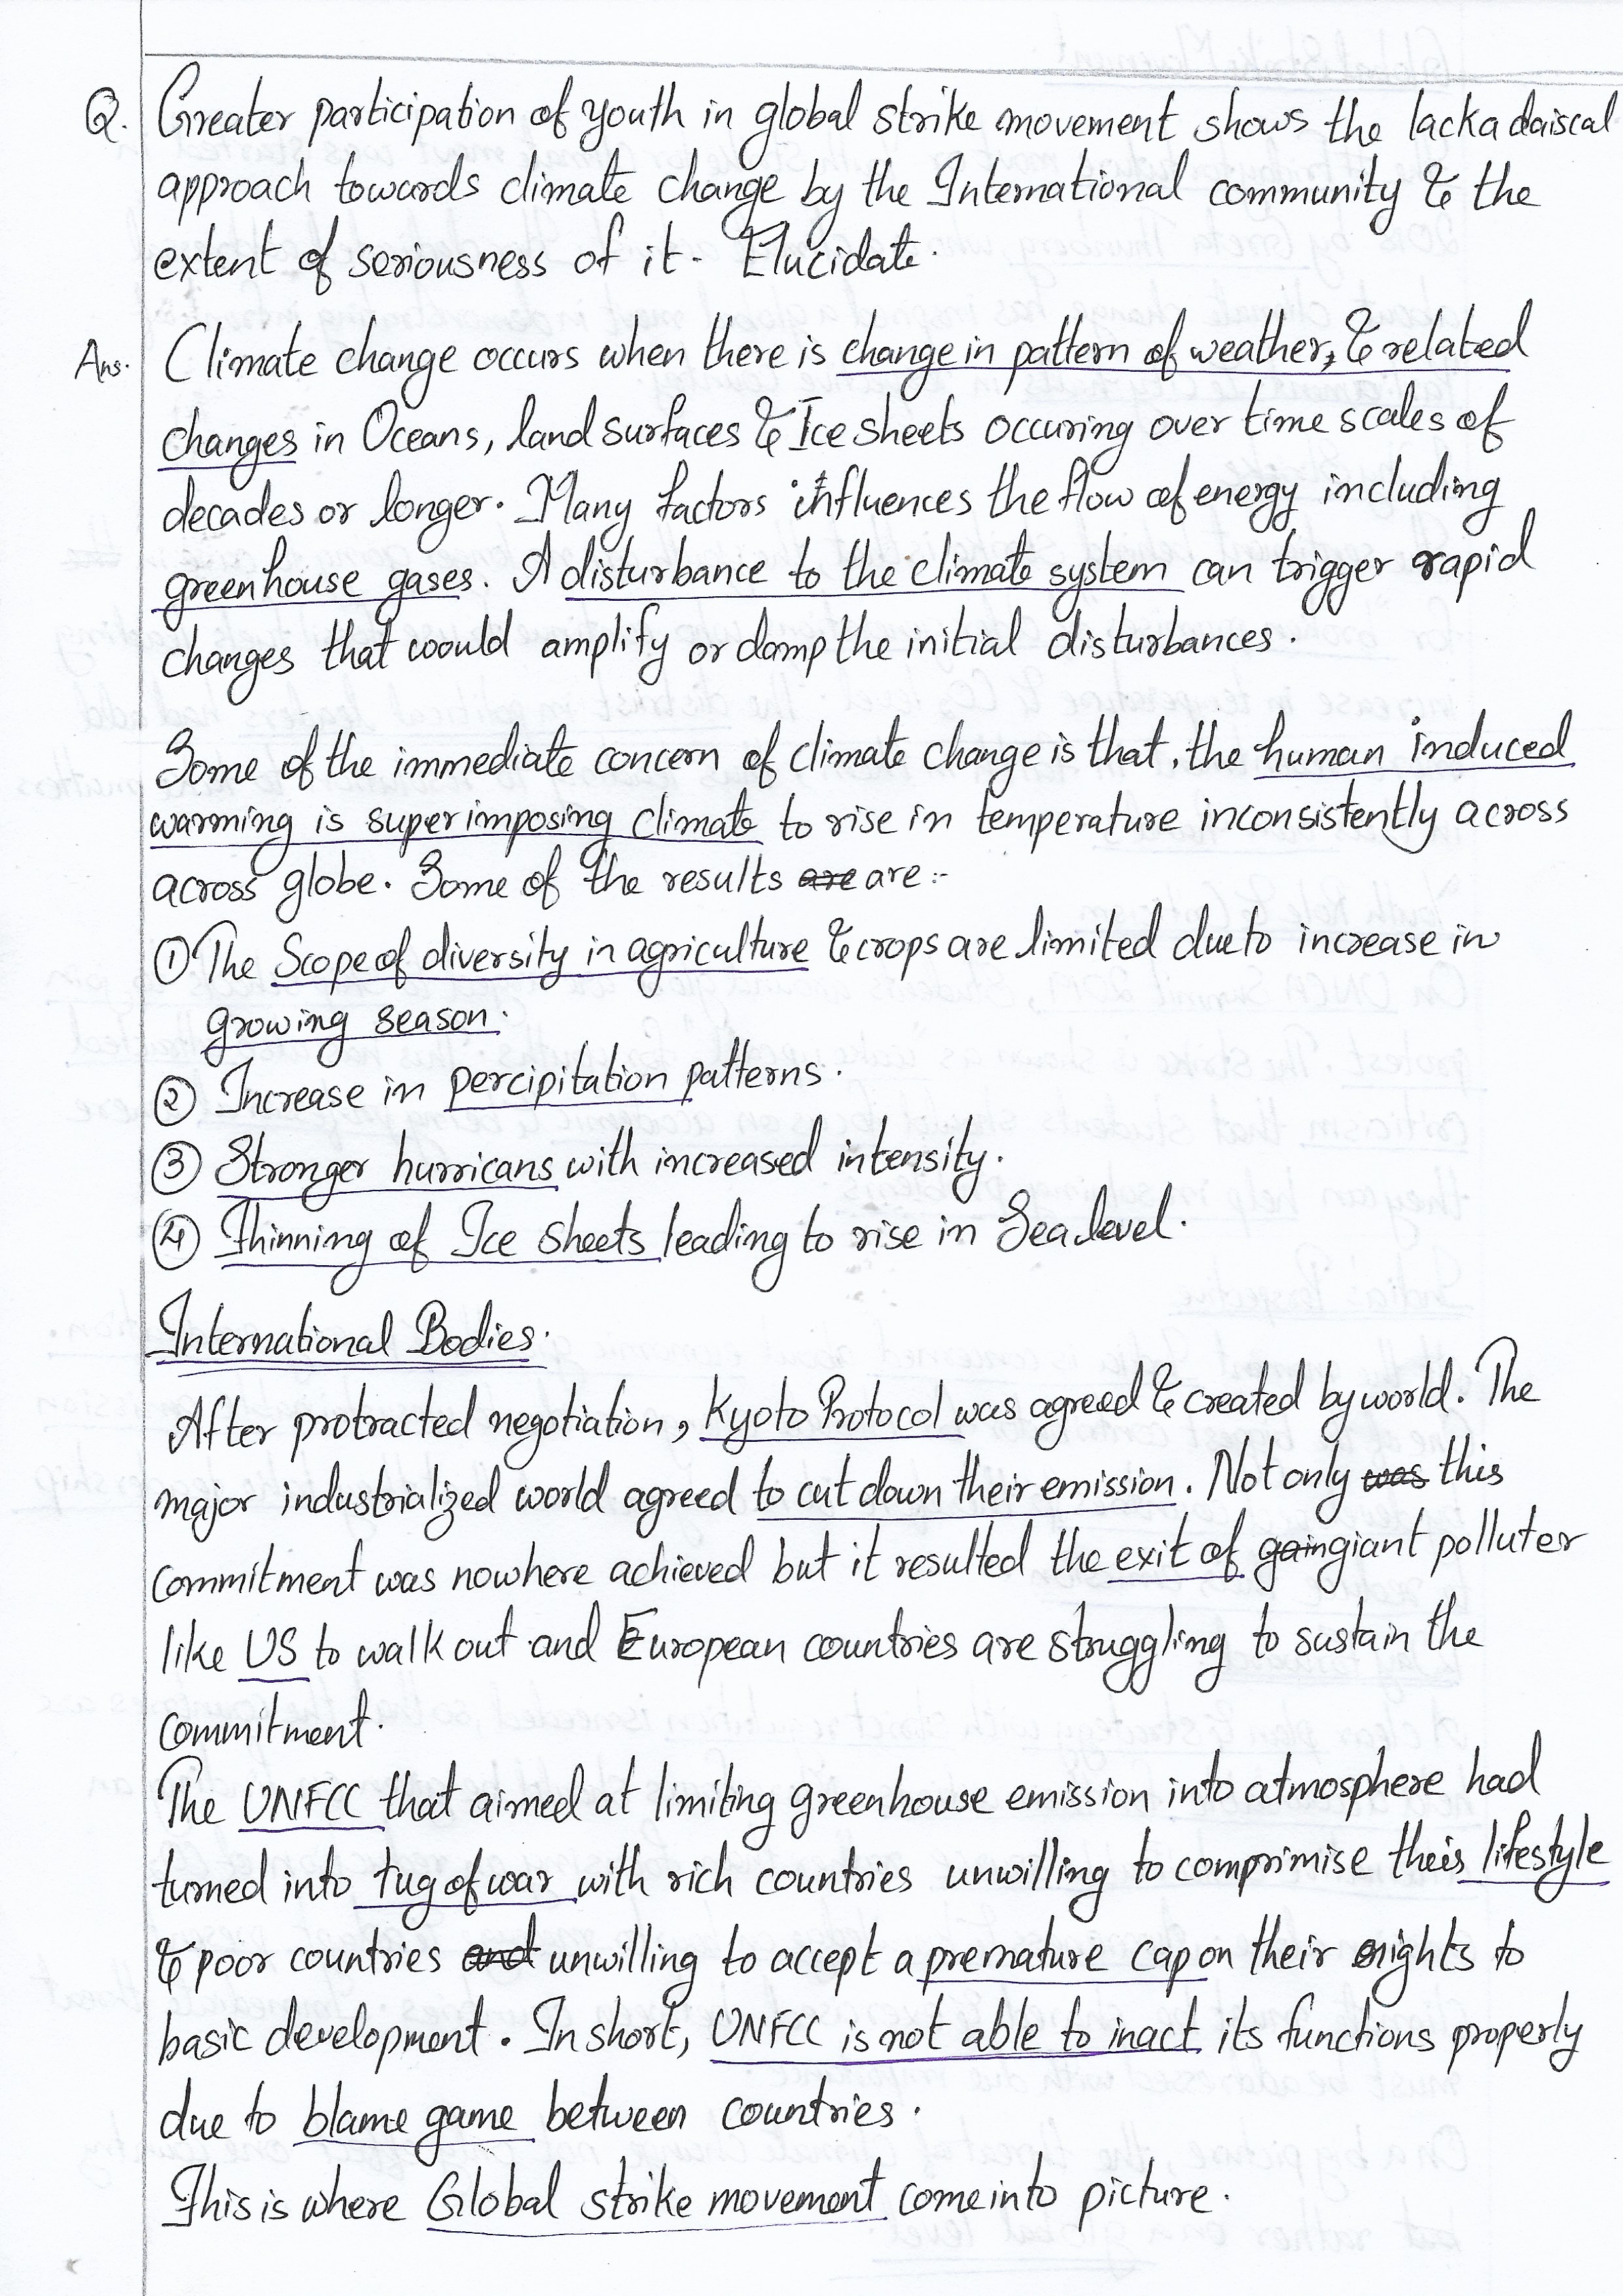 Q. Greater participation of youth in global strike movement shows the lackadaiscal
approach towards climate change by the International community & the
extent of seriousness of it - Elucidate.
Ans. Climate change occurs when there is change in pattern of weather, & related
changes in Oceans, land surfaces & Ice sheets occuring over time scales of
decades or longer. Many factors influences the flow of energy including
greenhouse gases. A disturbance to the climate system can trigger rapid
changes that would amplify or damp the initial disturbances.
Some of the immediate concern of climate change is that, the human induced
warming is superimposing climate to rise in temperature inconsistently across
across globe. Some of the results are are :-
① The Scope of diversity in agriculture & crops are limited due to increase in
growing season.
② Increase in percipitation patterns.
③ Stronger hurricans with increased intensity.
④ Thinning of Ice sheets leading to rise in Sea level.
International Bodies.
After protracted negotiation, Kyoto Protocol was agreed & created by world. The
major industrialized world agreed to cut down their emission. Not only was this
commitment was nowhere achieved but it resulted the exit of gain giant polluter
like US to walk out and European countries are struggling to sustain the
commitment.
The UNFCC that aimed at limiting greenhouse emission into atmosphere had
turned into tug of war with rich countries unwilling to comprimise their lifestyle
& poor countries and unwilling to accept a premature cap on their rights to
basic development. In short, UNFCC is not able to inact its functions properly
due to blame game between countries.
This is where Global strike movement come into picture.